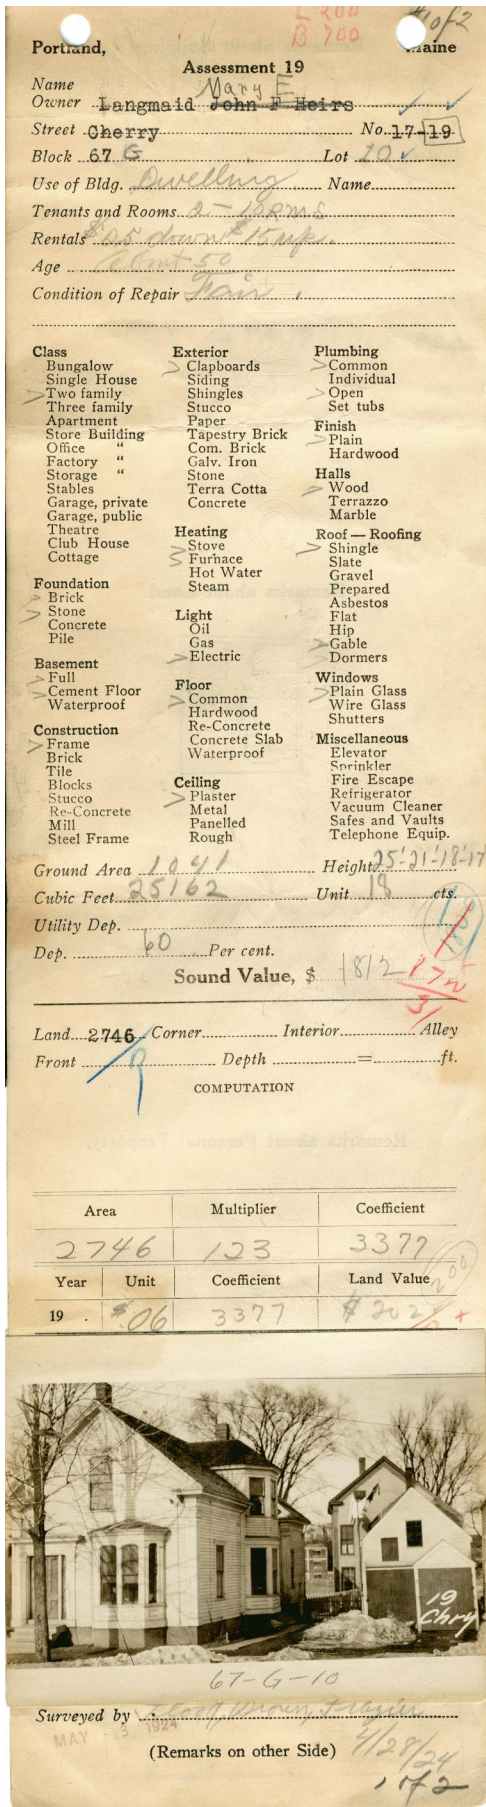 L 200
B 700
#1 of 2
Portland, Maine
Assessment 19
Name Mary E
Owner Langmaid John F Heirs
Street Cherry No. 17-19
Block 67 G Lot 10
Use of Bldg. Dwelling Name
Tenants and Rooms 2 - 10 RMS
Rentals $25 down $15 up.
Age About 50
Condition of Repair Fair.
Class
Bungalow
Single House
Two family
Three family
Apartment
Store Building
Office "
Factory "
Storage "
Stables
Garage, private
Garage, public
Theatre
Club House
Cottage
Foundation
Brick
Stone
Concrete
Pile
Basement
Full
Cement Floor
Waterproof
Construction
Frame
Brick
Tile
Blocks
Stucco
Re-Concrete
Mill
Steel Frame
Exterior
Clapboards
Siding
Shingles
Stucco
Paper
Tapestry Brick
Com. Brick
Galv. Iron
Stone
Terra Cotta
Concrete
Heating
Stove
Furnace
Hot Water
Steam
Light
Oil
Gas
Electric
Floor
Common
Hardwood
Re-Concrete
Concrete Slab
Waterproof
Ceiling
Plaster
Metal
Panelled
Rough
Plumbing
Common
Individual
Open
Set tubs
Finish
Plain
Hardwood
Halls
Wood
Terrazzo
Marble
Roof — Roofing
Shingle
Slate
Gravel
Prepared
Asbestos
Flat
Hip
Gable
Dormers
Windows
Plain Glass
Wire Glass
Shutters
Miscellaneous
Elevator
Sprinkler
Fire Escape
Refrigerator
Vacuum Cleaner
Safes and Vaults
Telephone Equip.
Ground Area 1041 Height 25'-21'-18'-17
Cubic Feet 25162 Unit 18 cts.
Utility Dep.
Dep. 60 Per cent.
Sound Value, $ 1812
Land 2746 Corner Interior Alley
Front Depth = ft.
COMPUTATION
Area Multiplier Coefficient
2746 123 3377
Year Unit Coefficient Land Value
19 . $.06 3377 $202
19
Chry
67-G-10
Surveyed by Brown, Frazier
MAY - 3 1924
4/28/24
(Remarks on other Side)
1 of 2